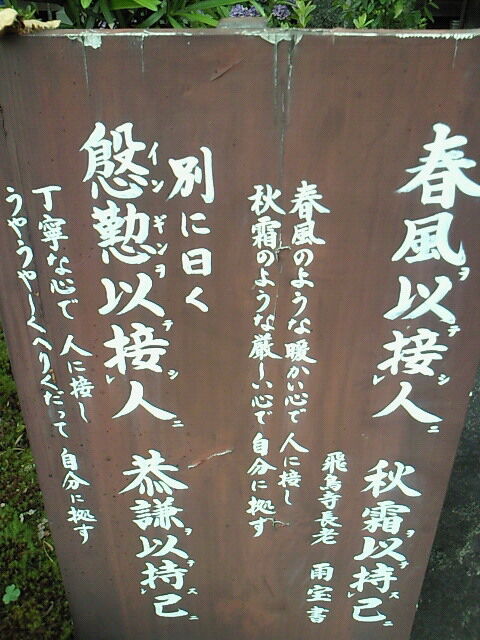 春風ヲ以テ接シ レ人ニ 秋霜ヲ以テ持ス レ己ニ
飛鳥寺長老 雨宝書
春風のような暖かい心で 人に接し
秋霜のような厳しい心で 自分に拠す
別に曰く
慇イン懃ギンヲ以テ接シ レ人ニ 恭謙ヲ以テ持ス レ己ニ
丁寧な心で 人に接し
うやうやしくへりくだって 自分に拠す